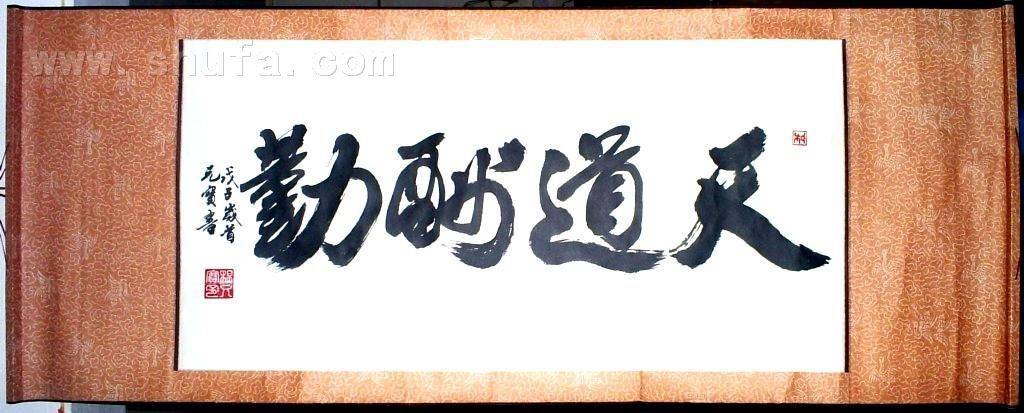 www.shufa.com
天道酬勤
戊子歲首
元寶書